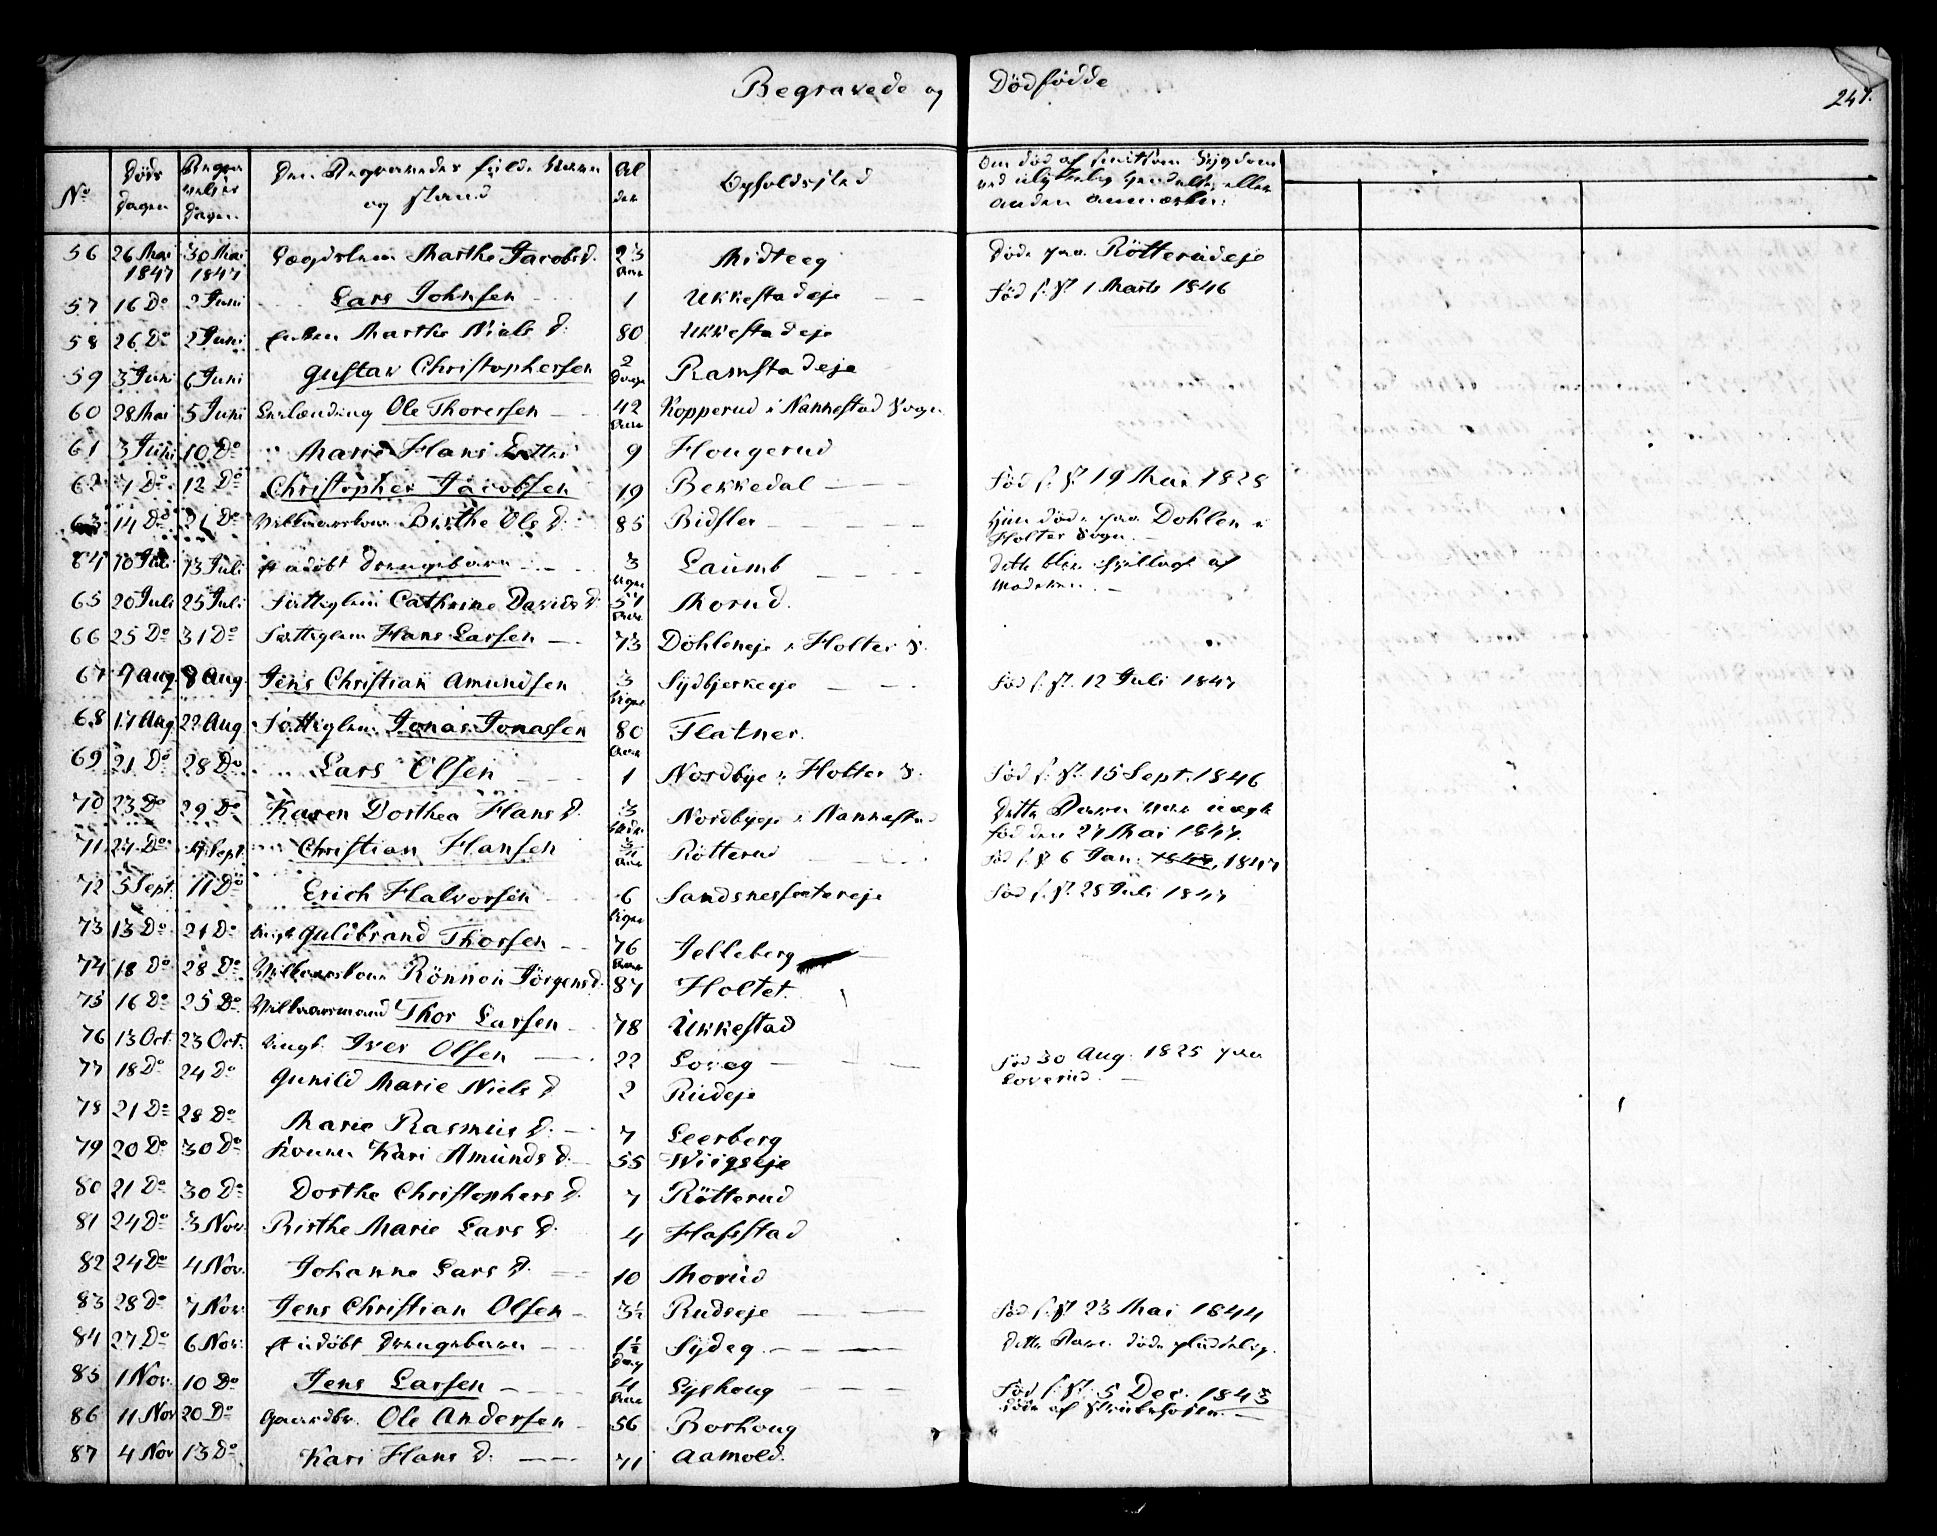 Begravede og Dödfödde
247.
No Döds dagen Begra velses dagen Den Begravedes fulde Navn og stand Al der Opholdssted Om død af smitsom Sygdom
ved ulykkelig Hendelse, eller
anden anmærkn:
56 26 Mai 1847 30 Mai 1847 Lægdslem Marthe Jacobsd. 23 Aar Midteeg Döde paa Rötterudeje
57 16 Do 2 Juni Lars Johnsen 1 Ukkestadeje Föd f. A. 1 Marts 1846
58 26 Do 2 Juni Enken Marthe Niels D. 80 Ukkestadeje
59 3 Juni 6 Juni Gustav Christophersen 2 Dage Ramstadeje
60 28 Mai 5 Juni Ole Thoresen 42 Aar Kopperud i Nannestad Sogn
61 3 Juni 10 Do Marie Hans Datter 9 Hougerud
62 7 Do 12 Do Christopher Jacobsen 19 Bekkedal Föd f. A. 19 Mai 1828
63 14 Do 21 Do Vilkaarskone Birthe Ols D. 85 Bidsler Hun döde paa Dohlen i
Holter Sogn.
64 10 Juli 13 Juli Et udöbt Drengebarn 3 Uger Laumb Dette blev ihjellagt af
Moderen.
65 20 Juli 25 Juli Fattiglem Cathrine Davids D. 57 Aar Morud.
66 25 Do 31 Do Fattiglem Hans Larsen 73 Dohleneje i Holter S.
67 7 Aug. 8 Aug. Jens Christian Amundsen 3 Uger Sydbjerkeeje Föd f. A. 12 Juli 1847
68 17 Aug 22 Aug Fattiglem Jonas Jonassen 80 Aar Flatner.
69 21 Do 28 Do Lars Olsen 1 Nordbye i Holter S. Föd f. A. 15 Sept. 1846
70 23 Do 29 Do Karen Dorthea Hans D. 3 Nordbyeje i Nannestad Dette Barn var uægte
föd den 27 Mai 1847.
71 27 Do 4 Sept. Christian Hansen Aar Rötterud Föd f. A. 6 Jan. 1847
72 5 Sept. 11 Do Erich Halvorsen 6 Uger Sandsnesseetereje Föd f. A. 28 Juli 1847
73 13 Do 21 Do Gulbrand Thorsen 76 Aar Jelleberg
74 18 Do 28 Do Vilkaarskone Rönnou Jörgensd. 87 Holtet.
75 16 Do 25 Do Vilkaarsmand Thor Larsen 78 Ukkestad
76 13 Oct. 23 Oct. Ungk. Iver Olsen 22 Loveg Föd 30 Aug. 1825 paa
Loverud.
77 18 Do 24 Do Gunild Marie Niels D 2 Rudeje
78 21 Do 28 Do Marie Rasmus D. 7 Leerberg
79 20 Do 30 Do Konen Kari Amunds D. 55 Wiigseje
80 21 Do 30 Do Dorthe Christophers D. 7 Rötterud
81 24 Do 3 Nov. Birthe Marie Lars D. 4 Hafsstad
82 24 Do 4 Nov. Johanne Lars D. 10 Morud
83 28 Do 7 Nov. Jens Christian Olsen 3½ Rudseje Föd f. A. 23 Mai 1844
84 27 Do 6 Nov. Et udöbt Drengebarn 1½ Dag Sydeg. Dette Barn döde pludselig.
85 1 Nov. 10 Do Jens Larsen 4 Aar Lyshoug Föd f. A. 5 Dec. 1843
Döde af Strubehoste.
86 11 Nov 20 Do Gaardbr. Ole Andersen 56 Borhoug
87 4 Nov 13 Do Kari Hans D. 71 Aamold.